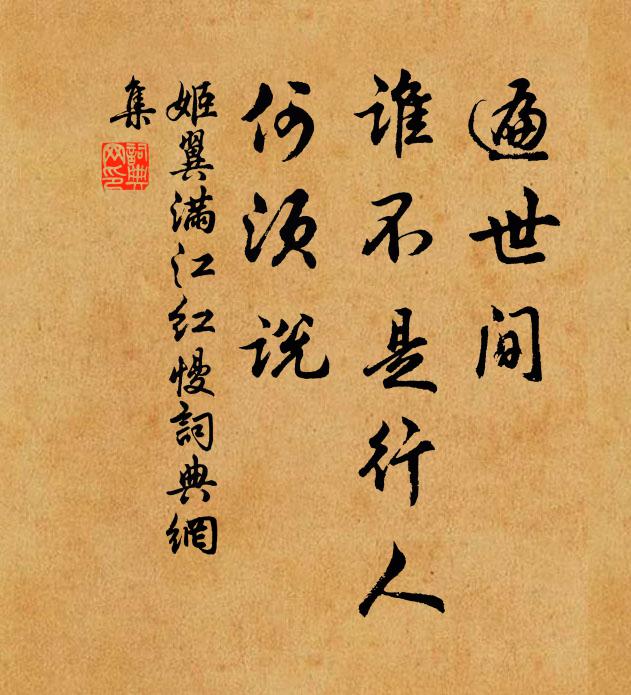 遍世间
谁不是行人
何须说
姬翼满江红慢詞典網
集
詞典
网印